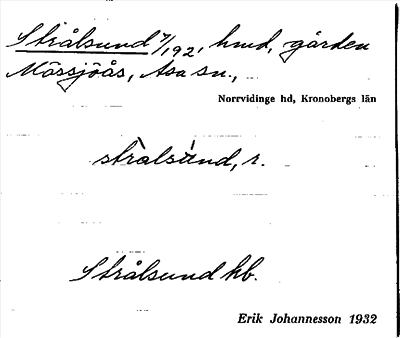 Strålsund 7/192, hmd, gården
Mössjöås, Asa sn.,
Norrvidinge hd, Kronobergs län
strålsùnd, r.
Strålsund hb.
Erik Johannesson 1932